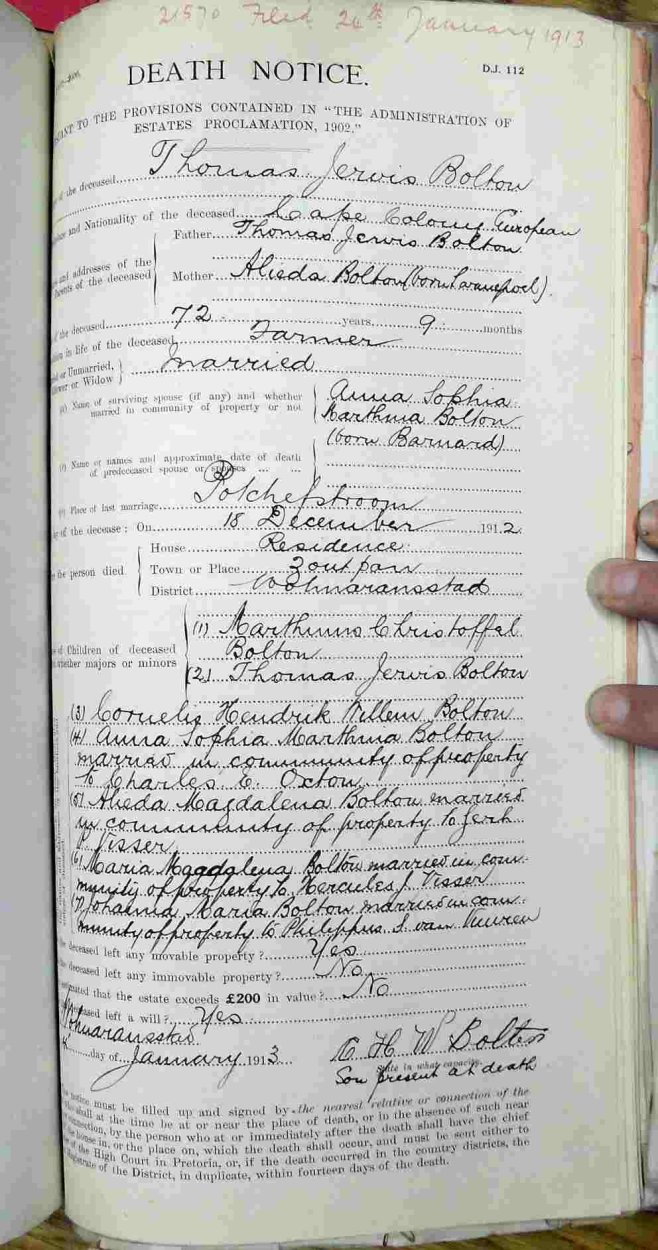 21570 Filed 24th January 1913
DEATH NOTICE.
D.J. 112
TO THE PROVISIONS CONTAINED IN "THE ADMINISTRATION OF
ESTATES PROCLAMATION, 1902."
of the deceased Thomas Jervis Bolton
and Nationality of the deceased Cape Colony European
Father Thomas Jervis Bolton
and addresses of the
of the deceased
Mother Alieda Bolton (born
of the deceased 72 years, 9 months
in life of the deceased Farmer
or Unmarried,
or Widow
Married
Name of surviving spouse (if any) and whether
married in community of property or not
Anna Sophia
Marthina Bolton
(born Barnard)
Name or names and approximate date of death
of predeceased spouse or spouses
Place of last marriage Potchefstroom
of the decease: On 18 December 1912
House Residence
the person died
Town or Place Zoutpan
District Wolmaransstad
of Children of deceased
whether majors or minors
(1) Marthinus Christoffel
Bolton
(2) Thomas Jervis Bolton
(3) Cornelis Hendrik Willem Bolton
(4) Anna Sophia Marthina Bolton
married in community of property
to Charles E. Oxton
(5) Alieda Magdalena Bolton married
in community of property to
Visser
(6) Maria Magdalena Bolton married in com-
munity of property to Hercules J. Visser
(7) Johanna Maria Bolton married in com-
munity of property to Philippus S. van Vuuren
deceased left any movable property? Yes
deceased left any immovable property? No
that the estate exceeds £200 in value? No
left a will? Yes
day of January 1913
C H W Bolton
State in what capacity.
Son present at death
notice must be filled up and signed by the nearest relative or connection of the
shall at the time be at or near the place of death, or in the absence of such near
connection, by the person who at or immediately after the death shall have the chief
house in, or the place on, which the death shall occur, and must be sent either to
of the High Court in Pretoria, or, if the death occurred in the country districts, the
of the District, in duplicate, within fourteen days of the death.